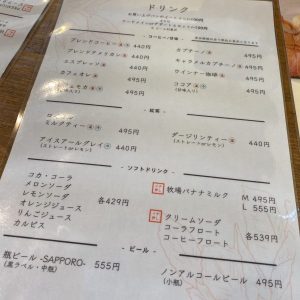 ドリンク
ブレンドコーヒー 440円
ブレンドアメリカン 440円
エスプレッソ 440円
カフェオレ 495円
カフェモカ 495円
カプチーノ 495円
キャラメルカプチーノ 495円
ウインナー珈琲 495円
ココア 495円
- 紅茶 -
ミルクティー 495円
アイスアールグレイ 440円
(ストレートorレモン)
ダージリンティー 440円
(ストレートorレモン)
- ソフトドリンク -
コカ・コーラ
メロンソーダ
レモンソーダ
オレンジジュース
りんごジュース
カルピス
各429円
牧場バナナミルク M 495円
L 555円
クリームソーダ
コーラフロート
コーヒーフロート
各539円
- ビール -
瓶ビール -SAPPORO- 555円
(黒ラベル・中瓶)
ノンアルコールビール 495円
(小瓶)